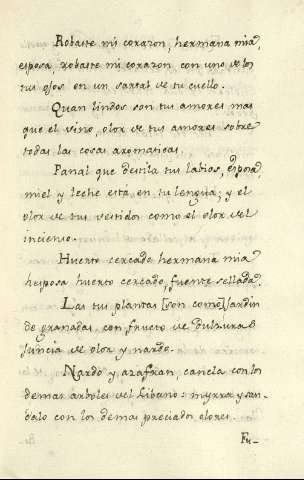 Robaste mi corazon, hermana mia,
esposa, robaste mi corazon con uno de los
tus ojos en un sartal de tu cuello.
Quan lindos son tus amores mas
que el vino, olor de tus amores sobre
todas las cosas aromaticas.
Panal que destila tus labios, esposa
miel y leche está en tu lengua; y el
olor de tus vestidos como el olor del
incienso.
Huerto cercado hermana mia
huerto cercado, fuente sellada.
Las tus plantas [son como] jardin
de granadas, con fructo de dulzuras
juncia de olor y nardo.
Nardo y azafran, canela con los
demas arboles del Libano: myrra y san-
dalo con los demas preciados olores.
Fu-